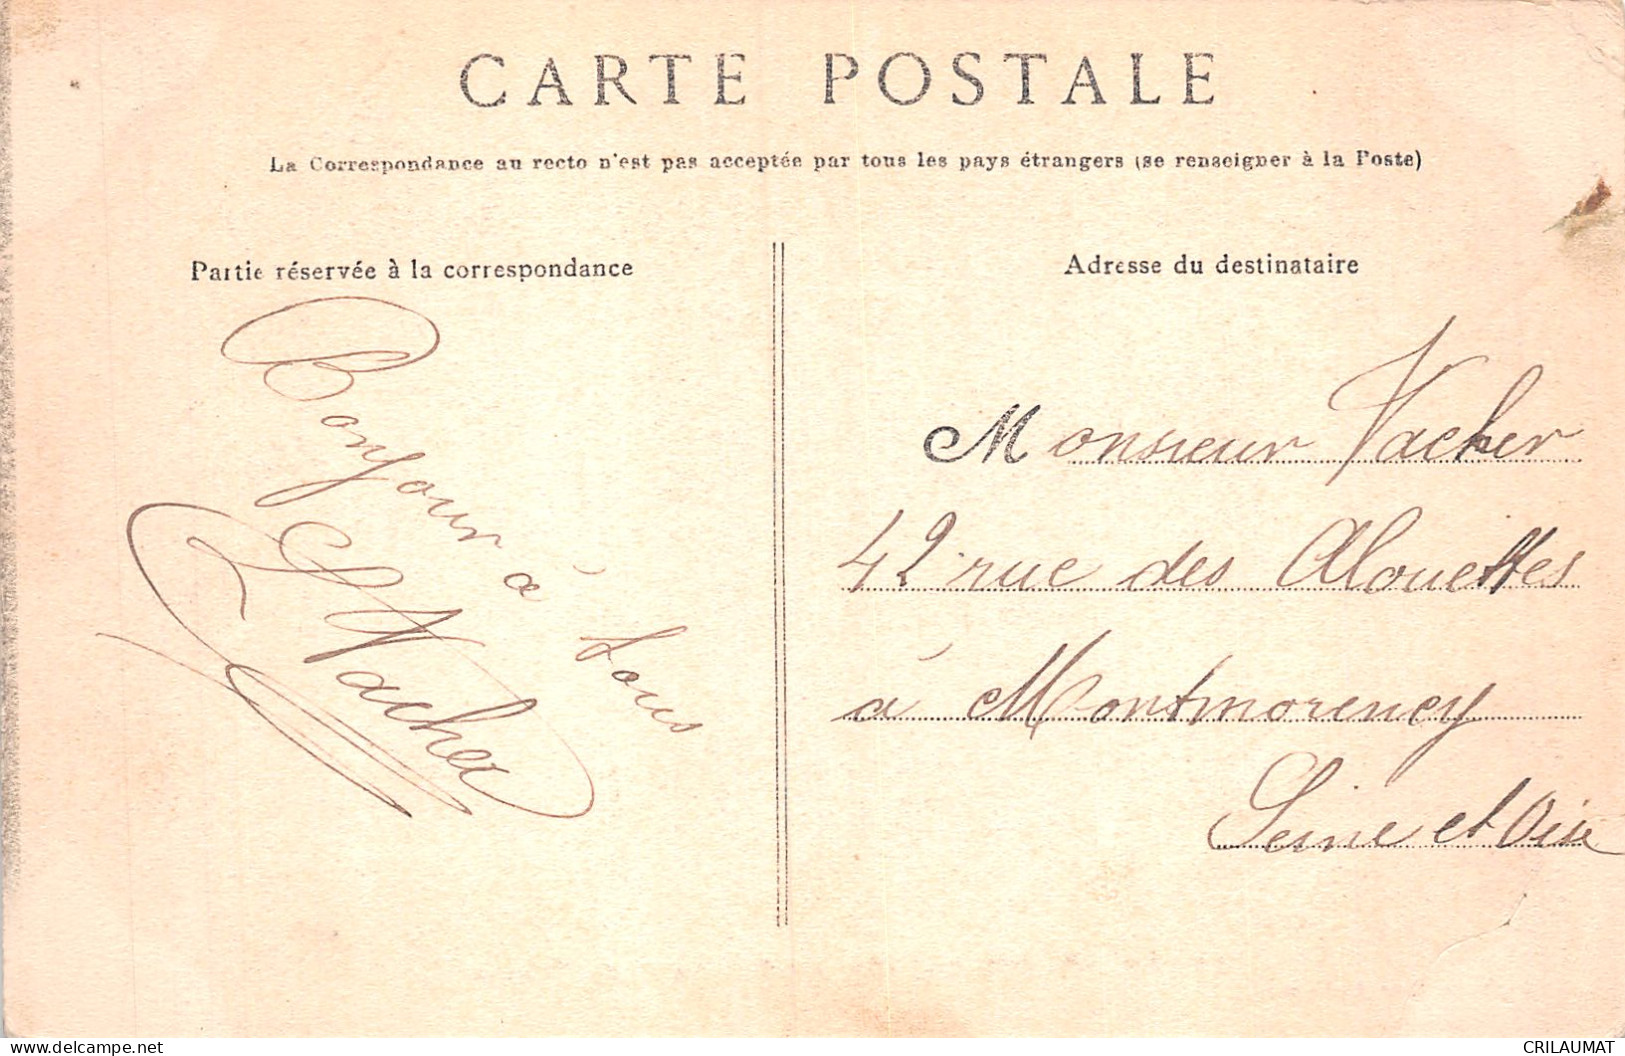 CARTE POSTALE
La Correspondance au recto n'est pas acceptée par tous les pays étrangers (se renseigner à la Poste)
Partie réservée à la correspondance
Bonjour à tous
Vacher
Adresse du destinataire
Monsieur Vacher
42 rue des Alouettes
à Montmorency
Seine et Oise
delcampe.net
CRILAUMAT